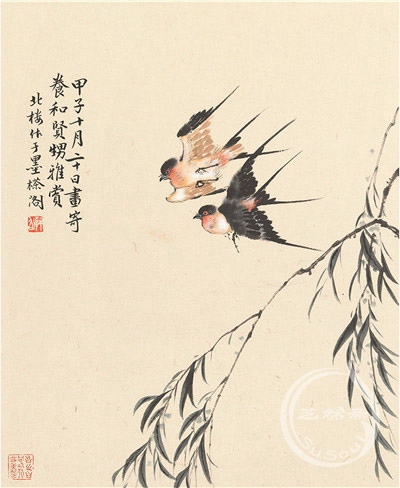 甲子十月二十日畫寄
養和賢甥雅賞
北樓作于墨茶閣
SuSoul